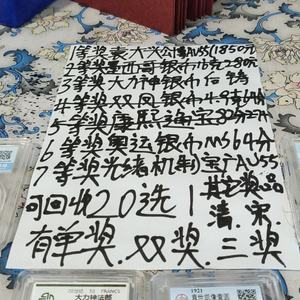 1等奖袁大头公博AU55(1850元
2等奖墨西哥银币16元280元
3等奖大力神银币后铸
4等奖双凤银币4.9克64分
5等奖康熙通宝80分27A
6等奖奥运银币MS64分
7等奖光绪机制宝广AU55
可回收20选1
其它奖品
清.宋.
有单奖.双奖.三奖
10 FRANCS
大力神法郎
1921